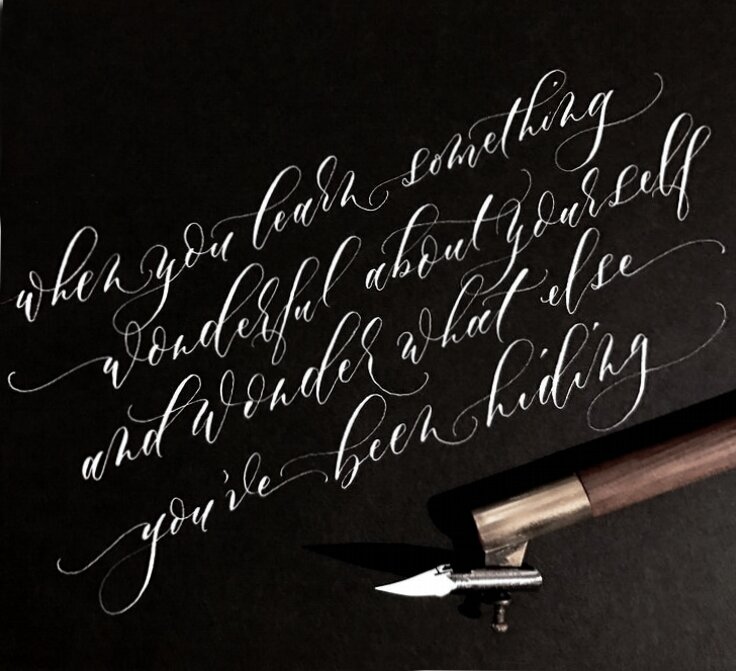 when you learn something
wonderful about yourself
and wonder what else
you've been hiding